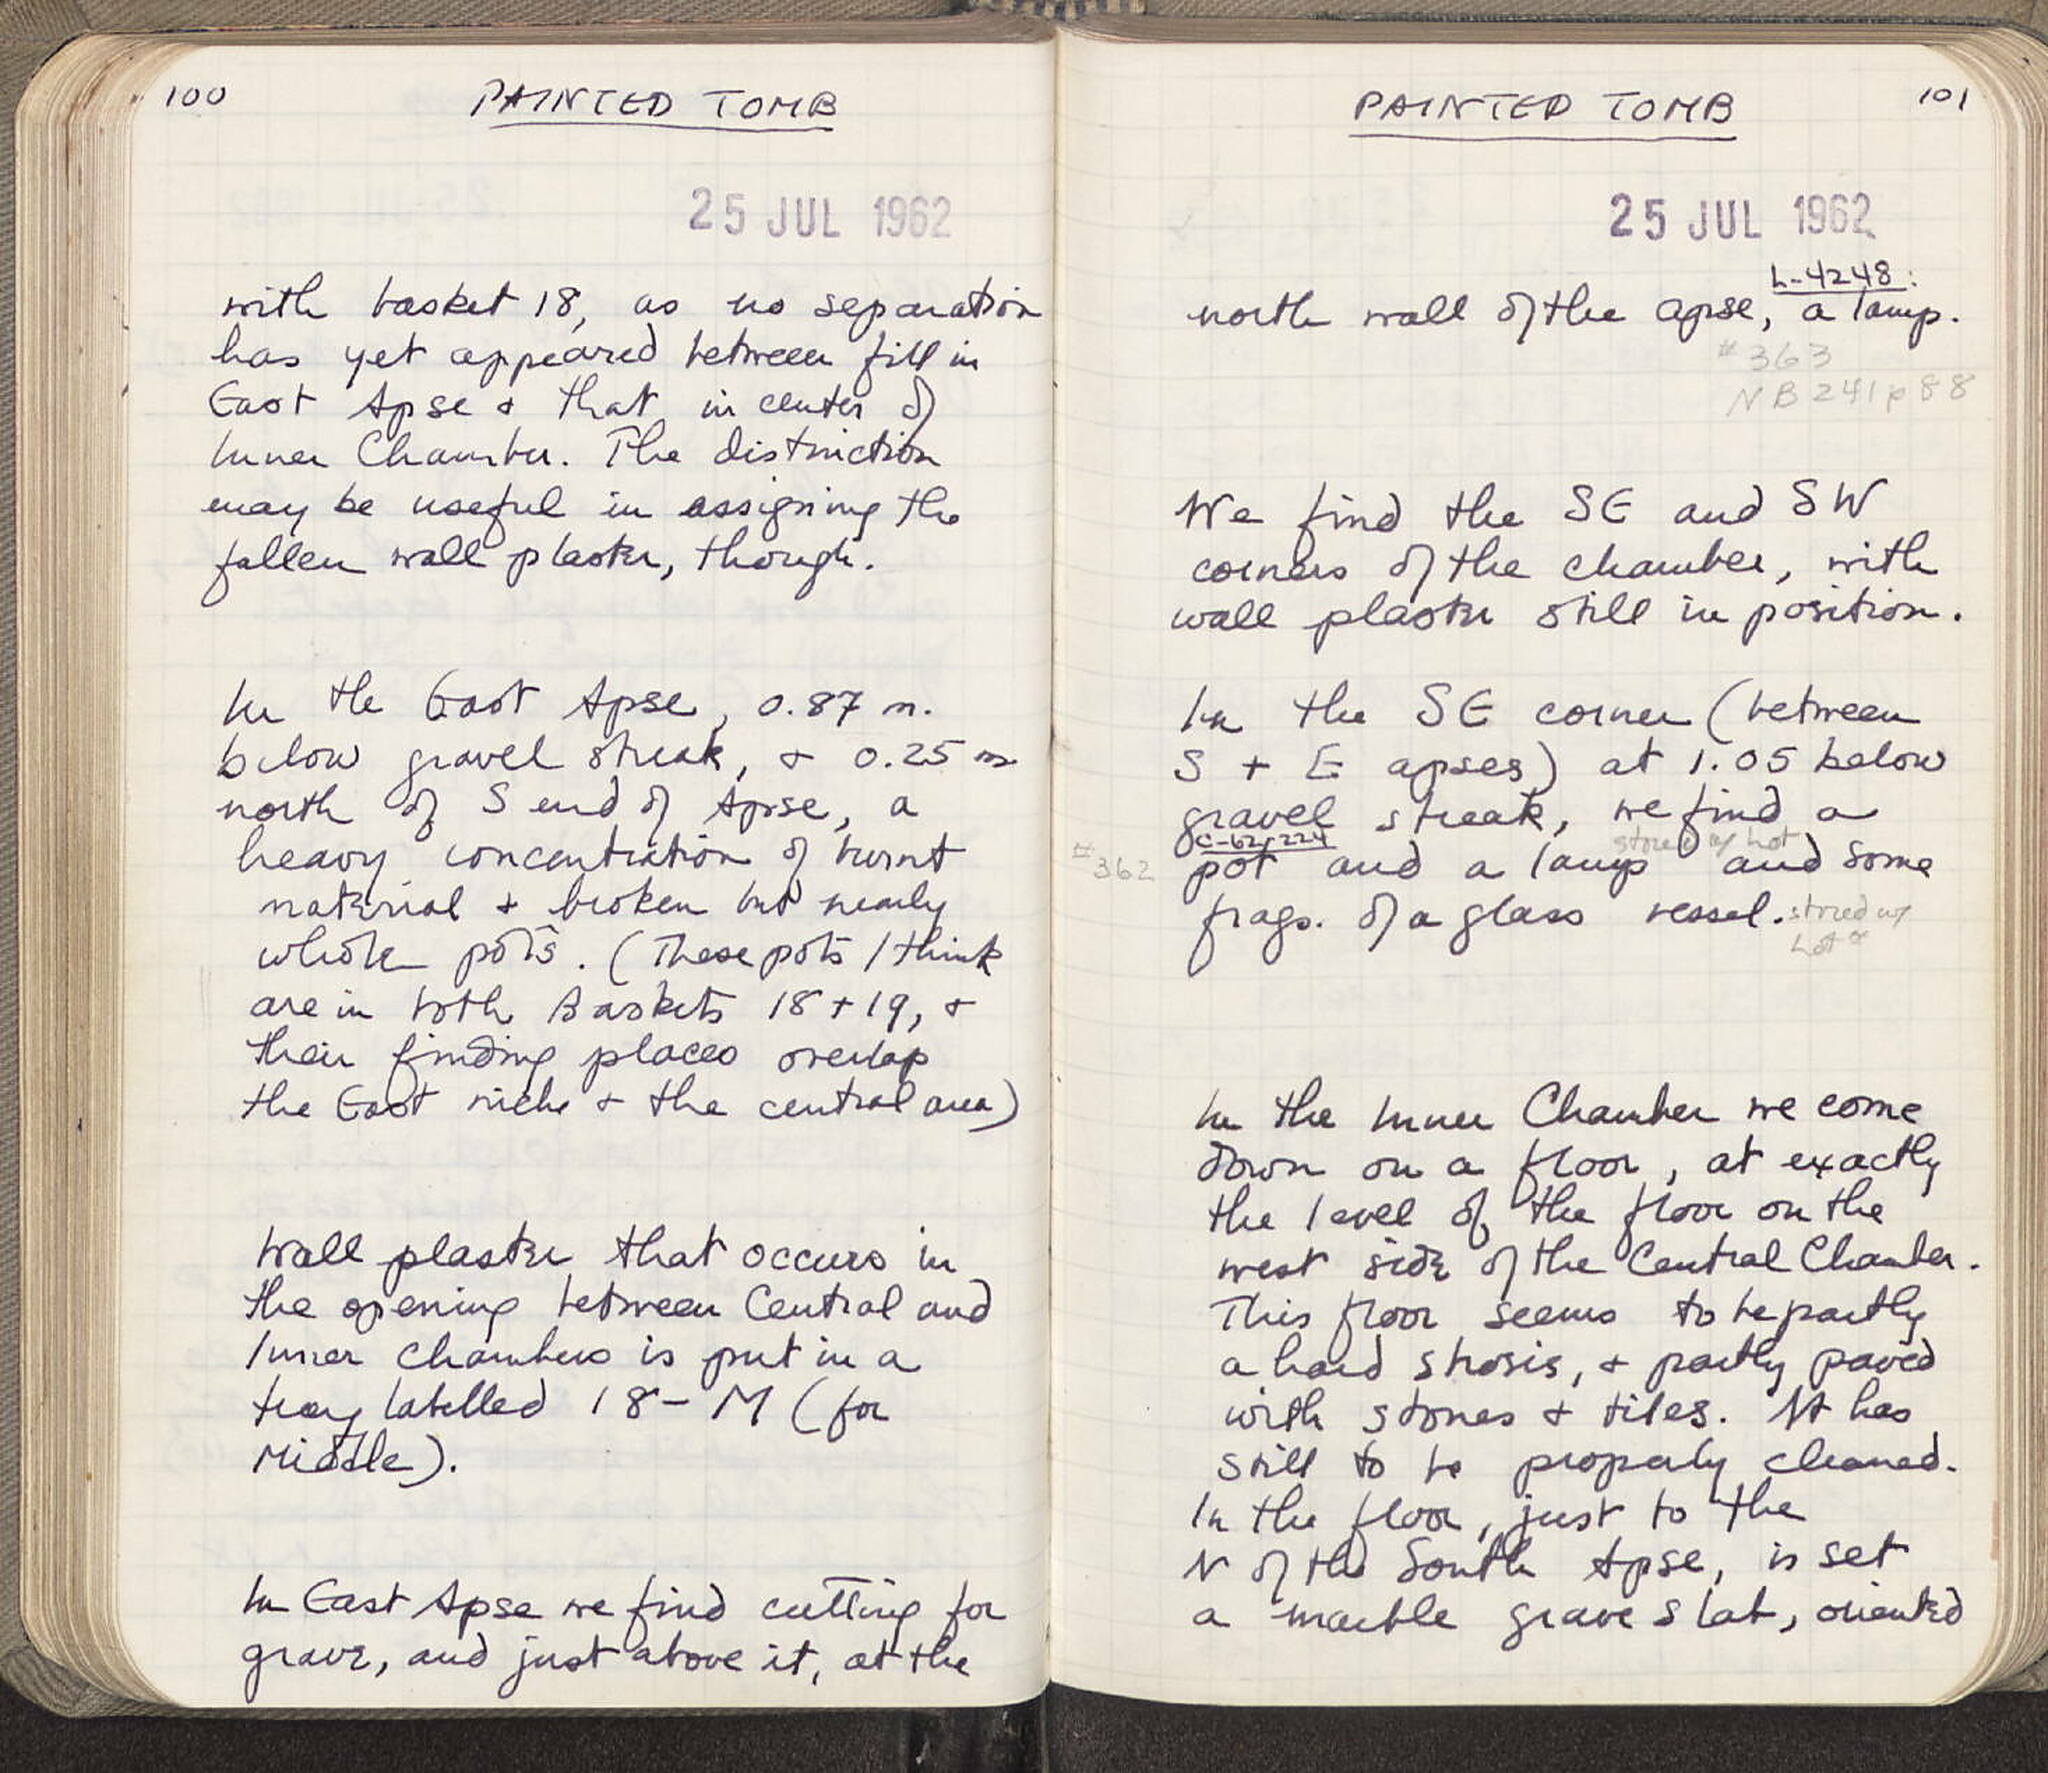 100
PAINTED TOMB
25 JUL 1962
with basket 18, as no separation
has yet appeared between fill in
East Apse + that in center of
Inner Chamber. The distinction
may be useful in assigning the
fallen wall plaster, though.
In the East Apse, 0.87 m.
below gravel streak, + 0.25 m
north of S end of Apse, a
heavy concentration of burnt
material + broken but nearly
whole pots. (These pots I think
are in both Baskets 18 + 19, +
their finding places overlap
the East niche + the central area)
Wall plaster that occurs in
the opening between Central and
Inner Chambers is put in a
tray labelled 18-M (for
Middle).
In East Apse we find cutting for
grave, and just above it, at the
101
PAINTED TOMB
25 JUL 1962
L-4248:
north wall of the apse, a lamp.
#363
NB 241 p 88
We find the SE and SW
corners of the chamber, with
wall plaster still in position.
In the SE corner (between
S + E apses) at 1.05 below
gravel streak, we find a
C-62-224 stored w/ Lot
#362 pot and a lamp and some
frags. of a glass vessel. stored w/
Lot
In the Inner Chamber we come
down on a floor, at exactly
the level of the floor on the
west side of the Central Chamber.
This floor seems to be partly
a hard strosis, + partly paved
with stones + tiles. It has
still to be properly cleaned.
In the floor, just to the
N of the South Apse, is set
a marble grave slab, oriented